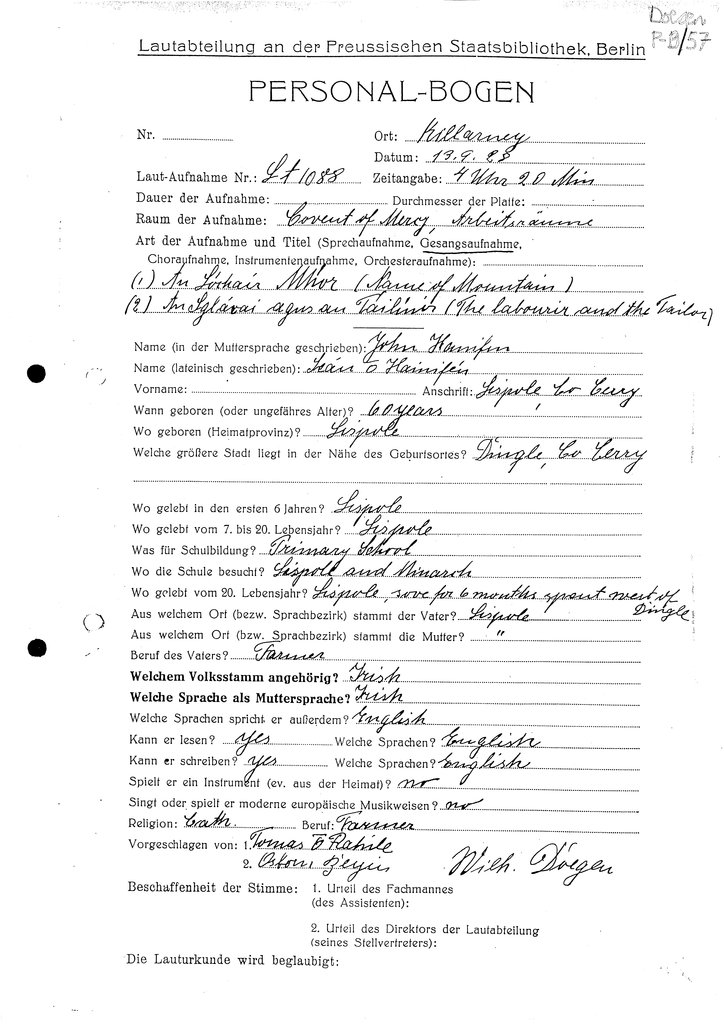 Doegen
P-B/57
Lautabteilung an der Preussischen Staatsbibliothek, Berlin
PERSONAL-BOGEN
Nr. Ort: Killarney
Datum: 13.9.28
Laut-Aufnahme Nr.: Lt 1088 Zeitangabe: 4 Uhr 20 Min
Dauer der Aufnahme: Durchmesser der Platte:
Raum der Aufnahme: Covent of Mercy, Arbeitsräume
Art der Aufnahme und Titel (Sprechaufnahme, Gesangsaufnahme,
Choraufnahme, Instrumentenaufnahme, Orchesteraufnahme):
(1) An Lóchair Mhór (Name of Mountain)
(2) An Sglávai agus an Tailiúir (The labourir and the Tailor)
Name (in der Muttersprache geschrieben): John Hainifen
Name (lateinisch geschrieben): Seán ó Hainifén
Vorname: Anschrift: Lispole, Co Cerry
Wann geboren (oder ungefähres Alter)? 60 years
Wo geboren (Heimatprovinz)? Lispole
Welche größere Stadt liegt in der Nähe des Geburtsortes? Dingle, Co Cerry
Wo gelebt in den ersten 6 Jahren? Lispole
Wo gelebt vom 7. bis 20. Lebensjahr? Lispole
Was für Schulbildung? Primary School
Wo die Schule besucht? Lispole and Minarch
Wo gelebt vom 20. Lebensjahr? Lispole, save for 6 months spent west of
Dingle
Aus welchem Ort (bezw. Sprachbezirk) stammt der Vater? Lispole
Aus welchem Ort (bezw. Sprachbezirk) stammt die Mutter? "
Beruf des Vaters? Farmer
Welchem Volksstamm angehörig? Irish
Welche Sprache als Muttersprache? Irish
Welche Sprachen spricht er außerdem? English
Kann er lesen? yes Welche Sprachen? English
Kann er schreiben? yes Welche Sprachen? English
Spielt er ein Instrument (ev. aus der Heimat)? no
Singt oder spielt er moderne europäische Musikweisen? no
Religion: Cath. Beruf: Farmer
Vorgeschlagen von: 1. Tomas Ó Rahile
2. Wilh. Doegen
Beschaffenheit der Stimme: 1. Urteil des Fachmannes
(des Assistenten):
2. Urteil des Direktors der Lautabteilung
(seines Stellvertreters):
Die Lauturkunde wird beglaubigt: